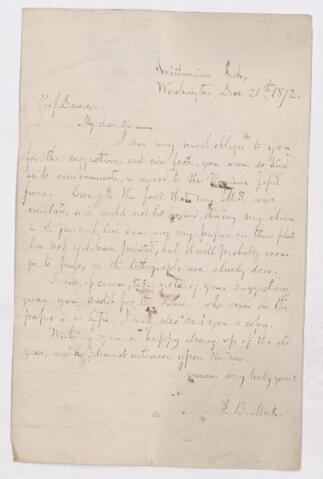 Smithsonian Inst.,
Washington, Dec 21st, 1872.
Prof Dawson
My dear Sir
I am very much obliged to you
for the suggestions, and new facts, you were so kind
as to communicate, in regard to the fossil
Owing to the fact that my MS. was
mislaid, and could not be found, during my absence
in the far west, last summer, my paper on these plants
has not yet been printed, but it will probably soon
go to press, as the lithographs are already done.
I will, of course, in of your suggestions,
give you credit for the same. As soon as the
paper is in type, I will also send you a copy.
Wishing you a happy closing up of the old
year, and a pleasant entrance upon the new,
I remain very truly yours,
F. B. Meek.